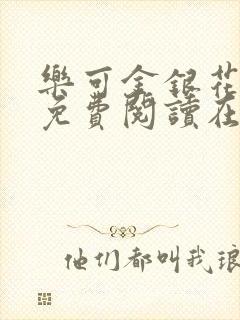 樂可金銀花
免費閱讀在
他们都叫我琅